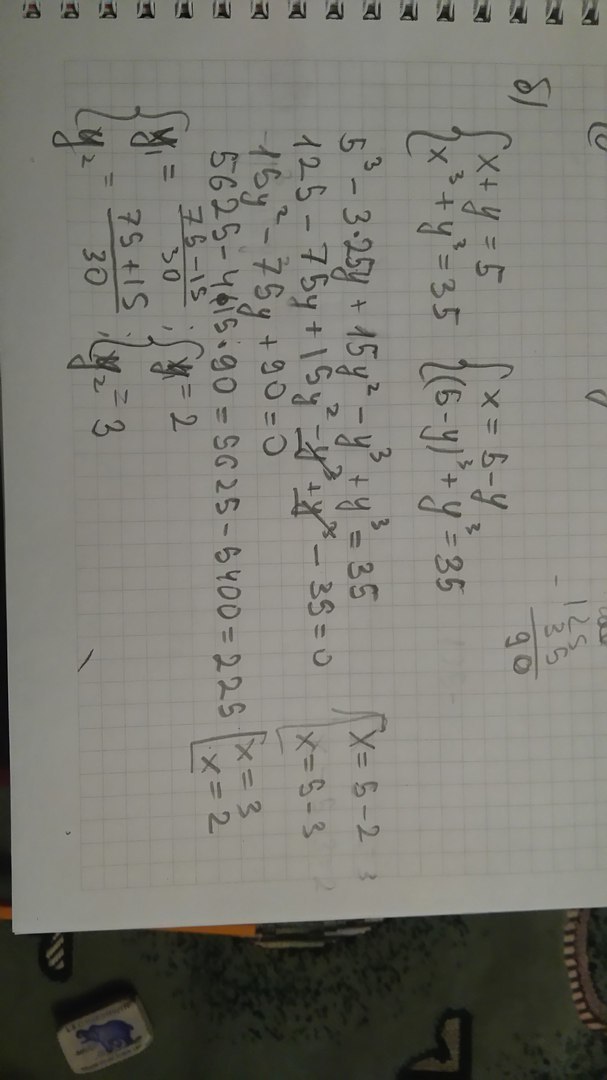 б)
{ x + y = 5
{ x³ + y³ = 35
{ x = 5 - y
{ (5 - y)³ + y³ = 35
- 125
35
90
5³ - 3·25y + 15y² - y³ + y³ = 35
125 - 75y + 15y² - y³ + y³ - 35 = 0
15y² - 75y + 90 = 0
5625 - 4·15·90 = 5625 - 5400 = 225
{ y₁ = (75 - 15)/30 ; { y₁ = 2
{ y₂ = (75 + 15)/30 ; { y₂ = 3
[ x = 5 - 2
[ x = 5 - 3
[ x = 3
[ x = 2